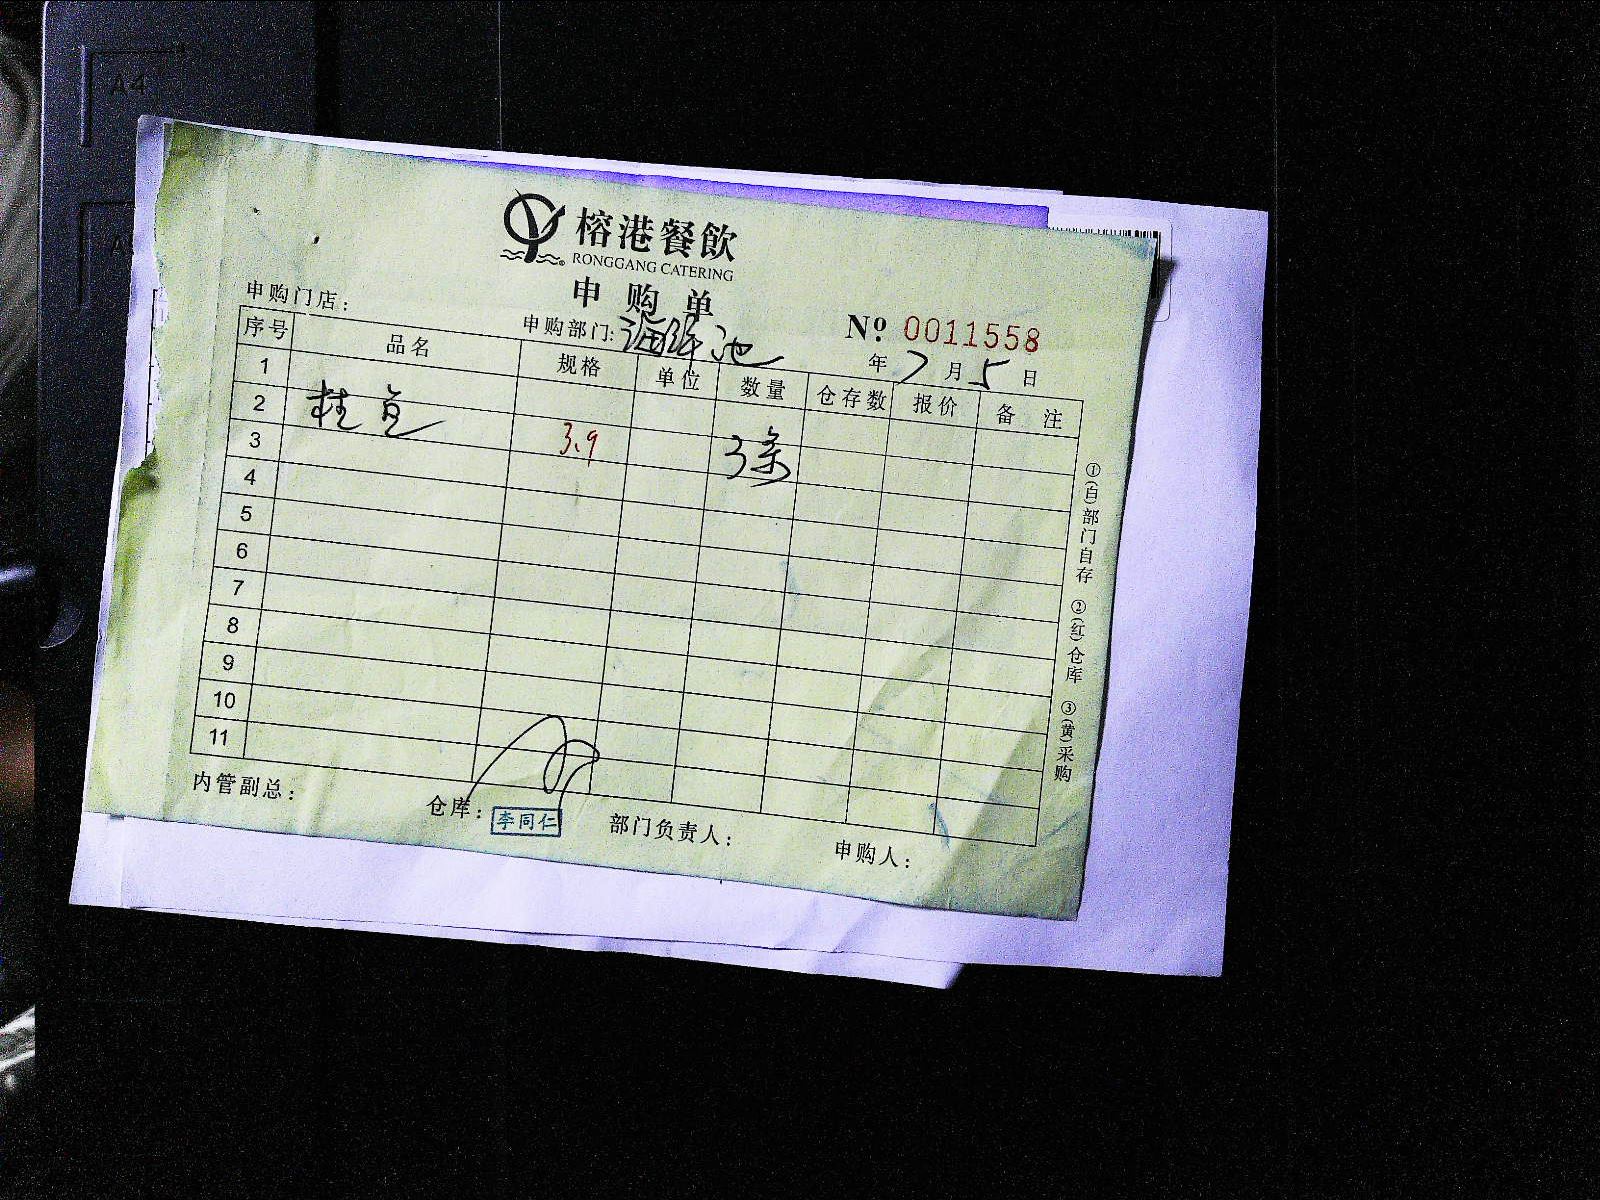 A4
榕港餐飲
RONGGANG CATERING
申购单
申购门店:
申购部门: 海鲜池
№ 0011558
年 7 月 5 日
序号 品名 规格 单位 数量 仓存数 报价 备注
1
2 桂鱼 3.9 3条
3
4
5
6
7
8
9
10
11
①(白)部门自存 ②(红)仓库 ③(黄)采购
内管副总:
仓库: 李同仁
部门负责人:
申购人: